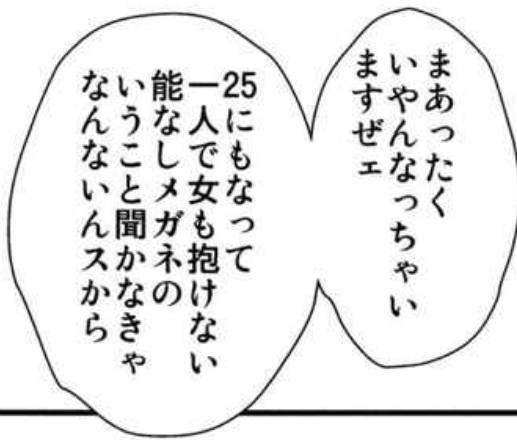 まあったく
いやんなっちゃい
ますぜェ
25にもなって
一人で女も抱けない
能なしメガネの
いうこと聞かなきゃ
なんないんスから